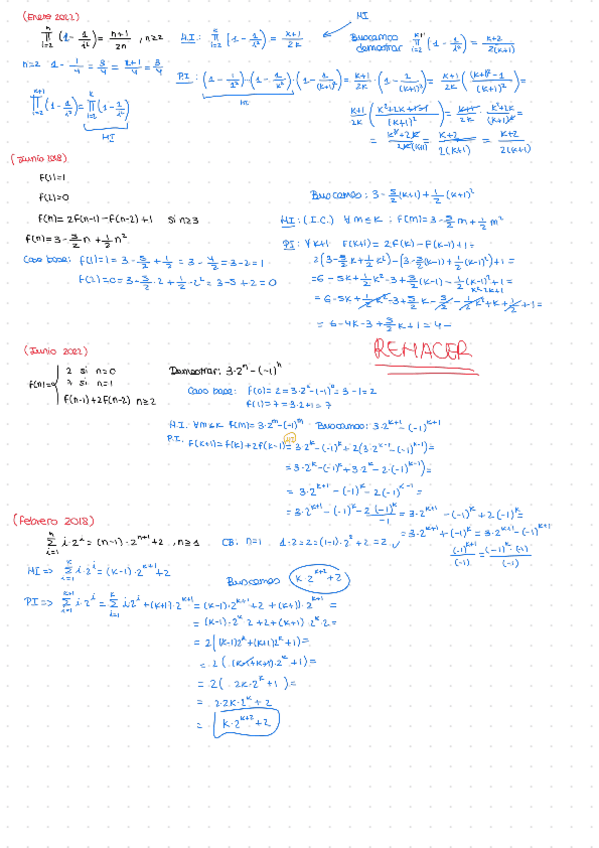 (Enero 2022)
∏_{i=2}^{n} (1 - 1/i²) = (n+1)/2n , n≥2   H.I.: ∏_{i=2}^{k} (1 - 1/i²) = (k+1)/2k   HI   Buscamos demostrar ∏_{i=2}^{k+1} (1 - 1/i²) = (k+2)/2(k+1)
n=2   1 - 1/4 = 3/4 = (2+1)/4 = 3/4
P.I.: (1 - 1/2²)·(1 - 1/k²)·(1 - 1/(k+1)²) = (k+1)/2k · (1 - 1/(k+1)²) = (k+1)/2k ((k+1)²-1)/(k+1)² =
HI
∏_{i=2}^{k+1} (1 - 1/i²) = ∏_{i=2}^{k} (1 - 1/i²)
HI
(k+1)/2k (k²+2k+1-1)/(k+1)² = (k+1)/2k · (k²+2k)/(k+1)² =
= (k²+2k)/2k(k+1) = (k+2)/2(k+1) = (k+2)/2(k+1)
(Junio 2018)
f(1)=1
f(2)=0
f(n)= 2f(n-1)-f(n-2)+1   si n≥3
f(n)= 3 - 5/2 n + 1/2 n²
Caso base: f(1)=1= 3 - 5/2 + 1/2 = 3 - 4/2 = 3-2=1
f(2)=0= 3 - 5/2·2 + 1/2·2² = 3-5+2=0
Buscamos: 3 - 5/2 (k+1) + 1/2 (k+1)²
H.I: (I.C.) ∀ m≤k ; f(m)= 3 - 5/2 m + 1/2 m²
P.I: ∀ k+1   f(k+1) = 2f(k) - f(k-1)+1=
2(3 - 5/2 k + 1/2 k²) - (3 - 5/2 (k-1) + 1/2 (k-1)²)+1 =
=6-5k+ 1/2 k²-3+ 5/2 (k-1) - 1/2 (k-1)²+1=
k²-2k+1
= 6-5k+ 1/2 k²-3+ 5/2 k - 5/2 - 1/2 k²+k+ 1/2 +1=
= 6-4k-3+ 5/2 k+1 = 4-
REHACER
(Junio 2022)
f(n)= { 2 si n=0
7 si n=1
f(n-1)+2f(n-2) n≥2
Demostrar: 3·2ⁿ-(-1)ⁿ
Caso base: f(0)=2=3·2⁰-(-1)⁰=3-1=2
f(1)=7=3·2+1=7
H.I. ∀m≤k f(m)=3·2ᵐ-(-1)ᵐ   Buscamos: 3·2ᵏ⁺¹-(-1)ᵏ⁺¹
P.I. f(k+1)=f(k)+2f(k-1)=3·2ᵏ-(-1)ᵏ+2(3·2ᵏ⁻¹-(-1)ᵏ⁻¹)=
=3·2ᵏ-(-1)ᵏ+3·2ᵏ-2·(-1)ᵏ⁻¹=
= 3·2ᵏ⁺¹-(-1)ᵏ-2(-1)ᵏ⁻¹=
= 3·2ᵏ⁺¹-(-1)ᵏ-2 (-1)ᵏ/-1 = 3·2ᵏ⁺¹-(-1)ᵏ+2(-1)ᵏ=
=3·2ᵏ⁺¹+(-1)ᵏ=3·2ᵏ⁺¹-(-1)ᵏ⁺¹
(-1)ᵏ⁺¹/(-1) = (-1)ᵏ·(-1)/(-1)
(Febrero 2018)
∑_{i=1}^{n} i·2ⁱ=(n-1)·2ⁿ⁺¹+2 , n≥1   CB: n=1   1·2=2=(1-1)·2²+2=2 ✓
HI⇒ ∑_{i=1}^{k} i·2ⁱ=(k-1)·2ᵏ⁺¹+2
Buscamos k·2ᵏ⁺²+2
P.I⇒ ∑_{i=1}^{k+1} i·2ⁱ=∑_{i=1}^{k} i·2ⁱ+(k+1)·2ᵏ⁺¹=(k-1)·2ᵏ⁺¹+2+(k+1)·2ᵏ⁺¹ =
= (k-1)·2ᵏ·2+2+(k+1)·2ᵏ·2=
= 2((k-1)2ᵏ+(k+1)2ᵏ+1)=
= 2((k-1+k+1)·2ᵏ+1)=
= 2( 2k·2ᵏ+1)=
= 2·2k·2ᵏ+2
= k·2ᵏ⁺²+2